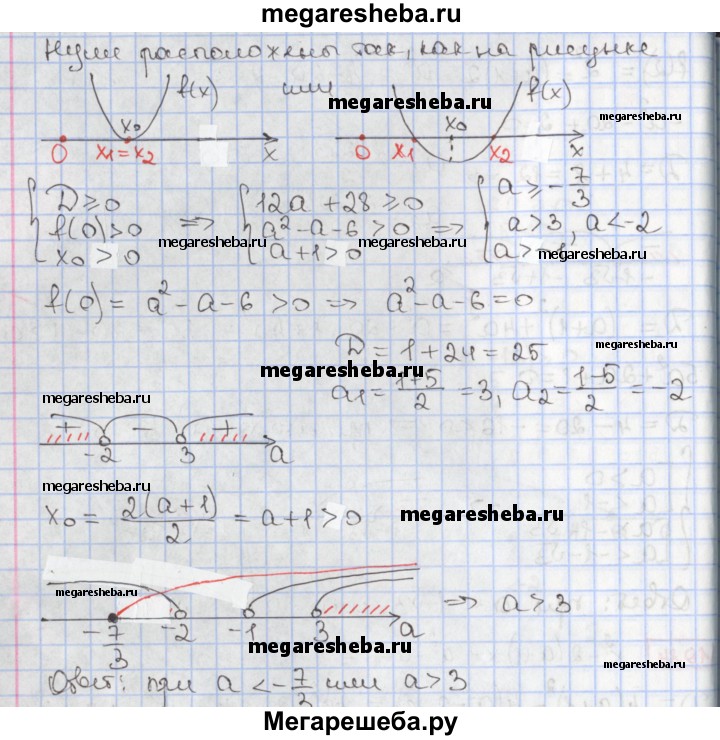 megaresheba.ru
Нули расположены так, как на рисунке
f(x) или f(x)
megaresheba.ru
x₀ x₀
0 x₁ = x₂ x 0 x₁ x₂ x
{ D ≥ 0 { 12a + 28 ≥ 0 { a ≥ -7/3
f(0) > 0 => a² - a - 6 > 0 => a > 3, a < -2
x₀ > 0 a + 1 > 0 a > -1
megaresheba.ru megaresheba.ru megaresheba.ru
f(0) = a² - a - 6 > 0 => a² - a - 6 = 0
D = 1 + 24 = 25
megaresheba.ru
megaresheba.ru
a₁ = (1+5)/2 = 3, a₂ = (1-5)/2 = -2
megaresheba.ru
+ - +
-2 3 a
megaresheba.ru
x₀ = 2(a+1)/2 = a + 1 > 0
megaresheba.ru
megaresheba.ru
-7/3 -2 -1 3 a => a > 3
megaresheba.ru
megaresheba.ru
Ответ: при a < -7/3 или a > 3
Мегарешеба.ру